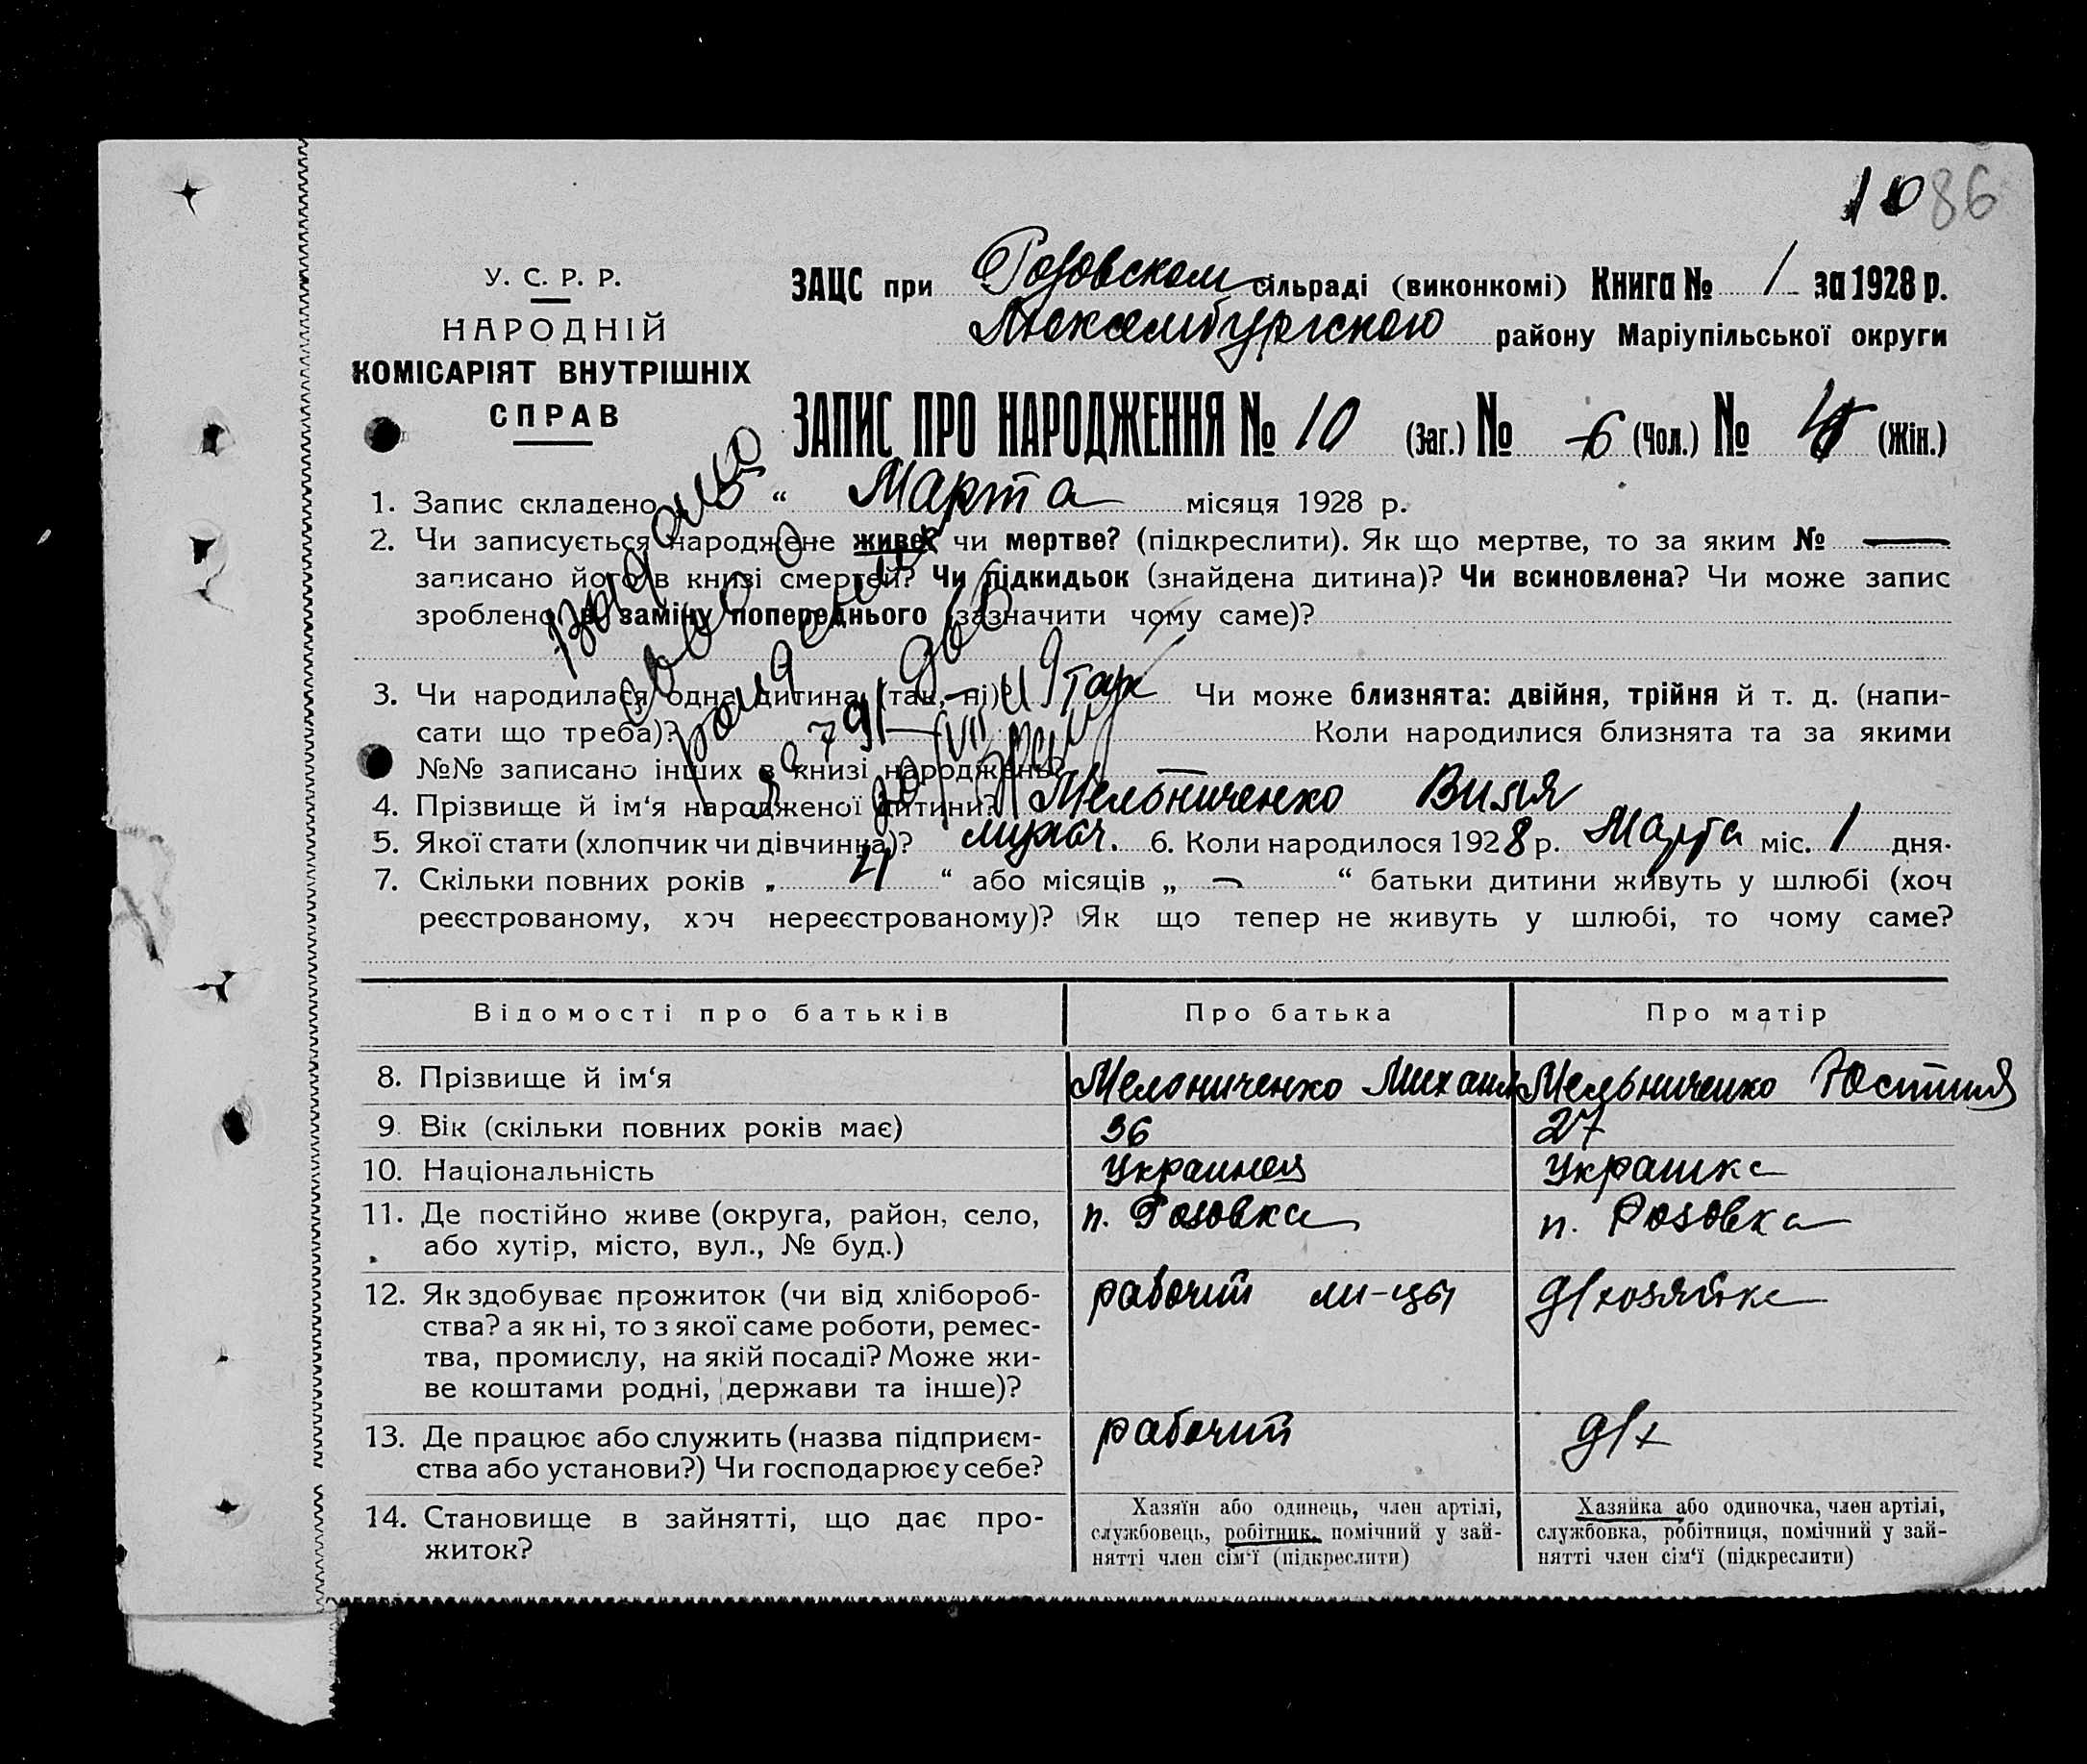 10 86
У. С. Р. Р.
НАРОДНІЙ
КОМІСАРІЯТ ВНУТРІШНІХ
СПРАВ
ЗАЦС при Розовском сільраді (виконкомі) Книга № 1 за 1928 р.
Люксембургского району Маріупільської округи
ЗАПИС ПРО НАРОДЖЕННЯ № 10 (Заг.) № 6 (Чол.) № (Жін.)
1. Запис складено „ 5 “ Марта місяця 1928 р.
2. Чи записується народжене живе? чи мертве? (підкреслити). Як що мертве, то за яким № —
записано його в книзі смертей? Чи підкидьок (знайдена дитина)? Чи всиновлена? Чи може запис
зроблено в заміну попереднього (зазначити чому саме)?
3. Чи народилася одна дитина (так, ні)? Так Чи може близнята: двійня, трійня й т. д. (напи-
сати що треба)? Коли народилися близнята та за якими
№№ записано інших в книзі народжень? —
4. Прізвище й ім‘я народженої дитини? Мельниченко Виля
5. Якої стати (хлопчик чи дівчинка)? 6. Коли народилося 1928 р. Марта міс. 1 дня.
7. Скільки повних років „ “ або місяців „ — “ батьки дитини живуть у шлюбі (хоч
реєстрованому, хоч нереєстрованому)? Як що тепер не живуть у шлюбі, то чому саме?
Выдано
Відомості про батьків Про батька Про матір
8. Прізвище й ім‘я Мельниченко Михаил Мельниченко Юстиня
9. Вік (скільки повних років має) 36 27
10. Національність Украинец Украинка
11. Де постійно живе (округа, район, село, п. Розовка п. Розовка
або хутір, місто, вул., № буд.)
12. Як здобуває прожиток (чи від хлібороб- рабочий д/хозяйка
ства? а як ні, то з якої саме роботи, ремес-
тва, промислу, на якій посаді? Може жи-
ве коштами родні, держави та інше)?
13. Де працює або служить (назва підприєм- рабочий д/х
ства або установи?) Чи господарює у себе?
14. Становище в зайнятті, що дає про-
житок?
Хазяїн або одинець, член артілі,
службовець, робітник, помічний у зай-
нятті член сім‘ї (підкреслити)
Хазяйка або одиночка, член артілі,
службовка, робітниця, помічний у зай-
нятті член сім‘ї (підкреслити)